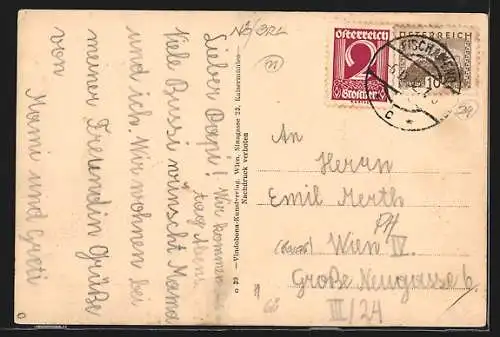 NÖ/BRL
Lieber Papi! Wir kommen
tag
Viele Bussi wünscht Mama
und ich. Wir wohnen bei
meiner Freundin Grüße
von
Mami und Greti
o 29 — Vindobona-Kunstverlag, Wien, Kaisermühlen
Nachdruck verboten
Österreich
2
Groschen
ÖSTERREICH
10
FISCHAMEND
c
*
An
Herrn
Emil Merth
Wien IV.
Große Neugasse 6.
III/24